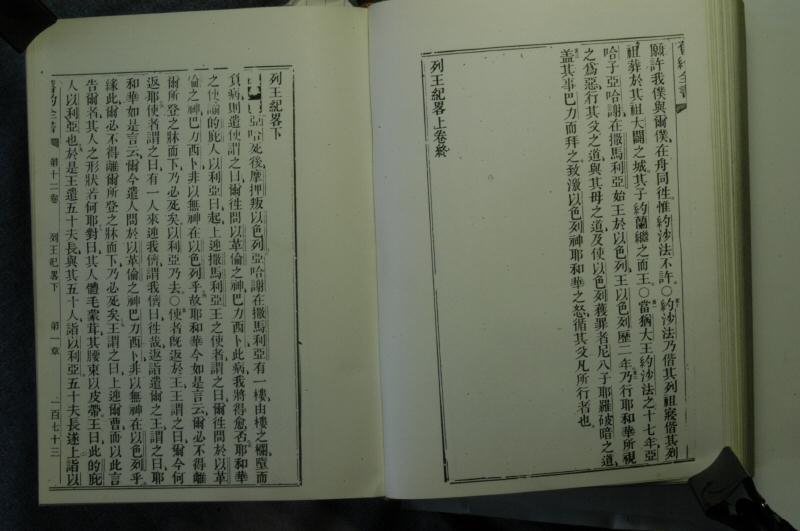 舊約全書
願許我僕與爾僕在舟同往惟約沙法不許○約沙法乃偕其列祖寢偕其列
祖葬於其祖大闢之城其子約蘭繼之而王○當猶大王約沙法之十七年亞
哈子亞哈謝在撒馬利亞始王於以色列王以色列歷二年乃行耶和華所視
之爲惡行其父之道與其母之道及使以色列獲罪者尼八子耶羅破暗之道
蓋其事巴力而拜之致激以色列神耶和華之怒循其父凡所行者也
列王紀畧上卷終
列王紀畧下
亞哈死後摩押叛以色列亞哈謝在撒馬利亞有一樓由樓之欄墮而
負病則遣使謂之曰爾往問以革倫之神巴力西卜此病我將得愈否耶和華
之使諭的庇人以利亞曰起上迎撒馬利亞王之使者謂之曰爾往問於以革
倫之神巴力西卜非以無神在以色列乎故耶和華今如是言云爾必不得離
爾所登之牀而下乃必死矣以利亞乃去○使者旣返於王王謂之曰爾今何
返耶使者謂之曰有一人來迎我儕謂我儕曰往哉返詣遣爾之王謂之曰耶
和華如是言云爾今遣人問於以革倫之神巴力西卜非以無神在以色列乎
緣此爾必不得離爾所登之牀而下乃必死矣王謂之曰上迎爾曹而以此言
告爾者其人之形狀若何耶對曰其人體毛蒙茸其腰束以皮帶王曰此的庇
人以利亞也於是王遣五十夫長與其五十人詣以利亞五十夫長遂上詣以
舊約全書 第十二卷 列王紀畧下 第一章 一百七十三